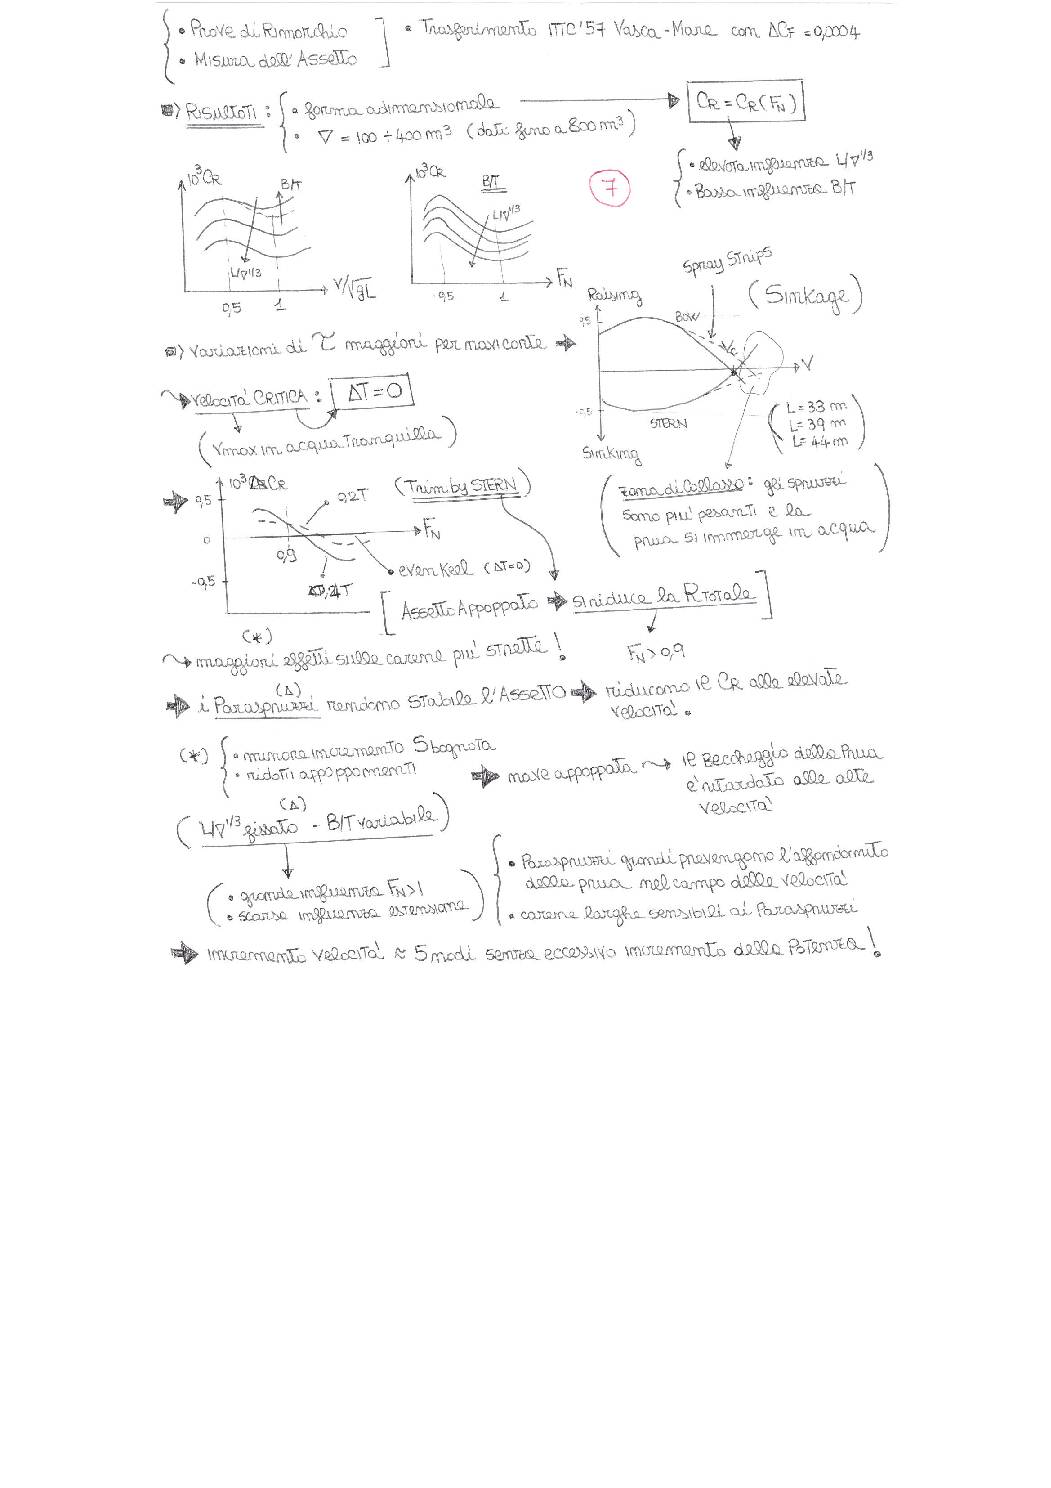 • Prove di Rimorchio
• Misura dell'Assetto
• Trasferimento ITTC '57 Vasca-Mare con ΔCF = 0,0004
⇒) Risultati :
• forma adimensionale
• ∇ = 100 ÷ 400 m³ (dati fino a 800 m³)
CR = CR (FN)
• elevata influenza L/∇^1/3
• Bassa influenza B/T
10³CR
B/T
L/∇^1/3
0,5
1
V/√gL
10³CR
B/T
L/∇^1/3
0,5
1
FN
7
Spray Strips
(Sinkage)
Raising
0,5
BOW
Vc
V
-0,5
STERN
Sinking
L = 33 m
L = 39 m
L = 44 m
⇒) Variazioni di τ maggiori per navi corte
Velocità CRITICA : ΔT = 0
(Vmax in acqua tranquilla)
zona di Collasso : gli spruzzi
sono più pesanti e la
prua si immerge in acqua
10³ΔCR
0,5
0
-0,5
0,2T
(Trim by STERN)
FN
0,9
even Keel (ΔT=0)
[Assetto Appoppato ⇒ si riduce la RTotale]
FN > 0,9
(*)
maggiori effetti sulle carene più strette !
(Δ)
⇒ i Paraspruzzi rendono stabile l'Assetto ⇒ riducono il CR alle elevate
velocità.
(*)
• minore incremento Sbagnata
• ridotti appoppamenti
⇒ nave appoppata
il Beccheggio della Prua
è ritardato alle alte
velocità
(Δ)
(L/∇^1/3 fissato - B/T variabile)
• grande influenza FN>1
• scarsa influenza estensione
• Paraspruzzi grandi prevengono l'affondamento
della prua nel campo delle velocità
• carene larghe sensibili ai Paraspruzzi
⇒ incremento velocità ≈ 5 nodi senza eccessivo incremento della Potenza !